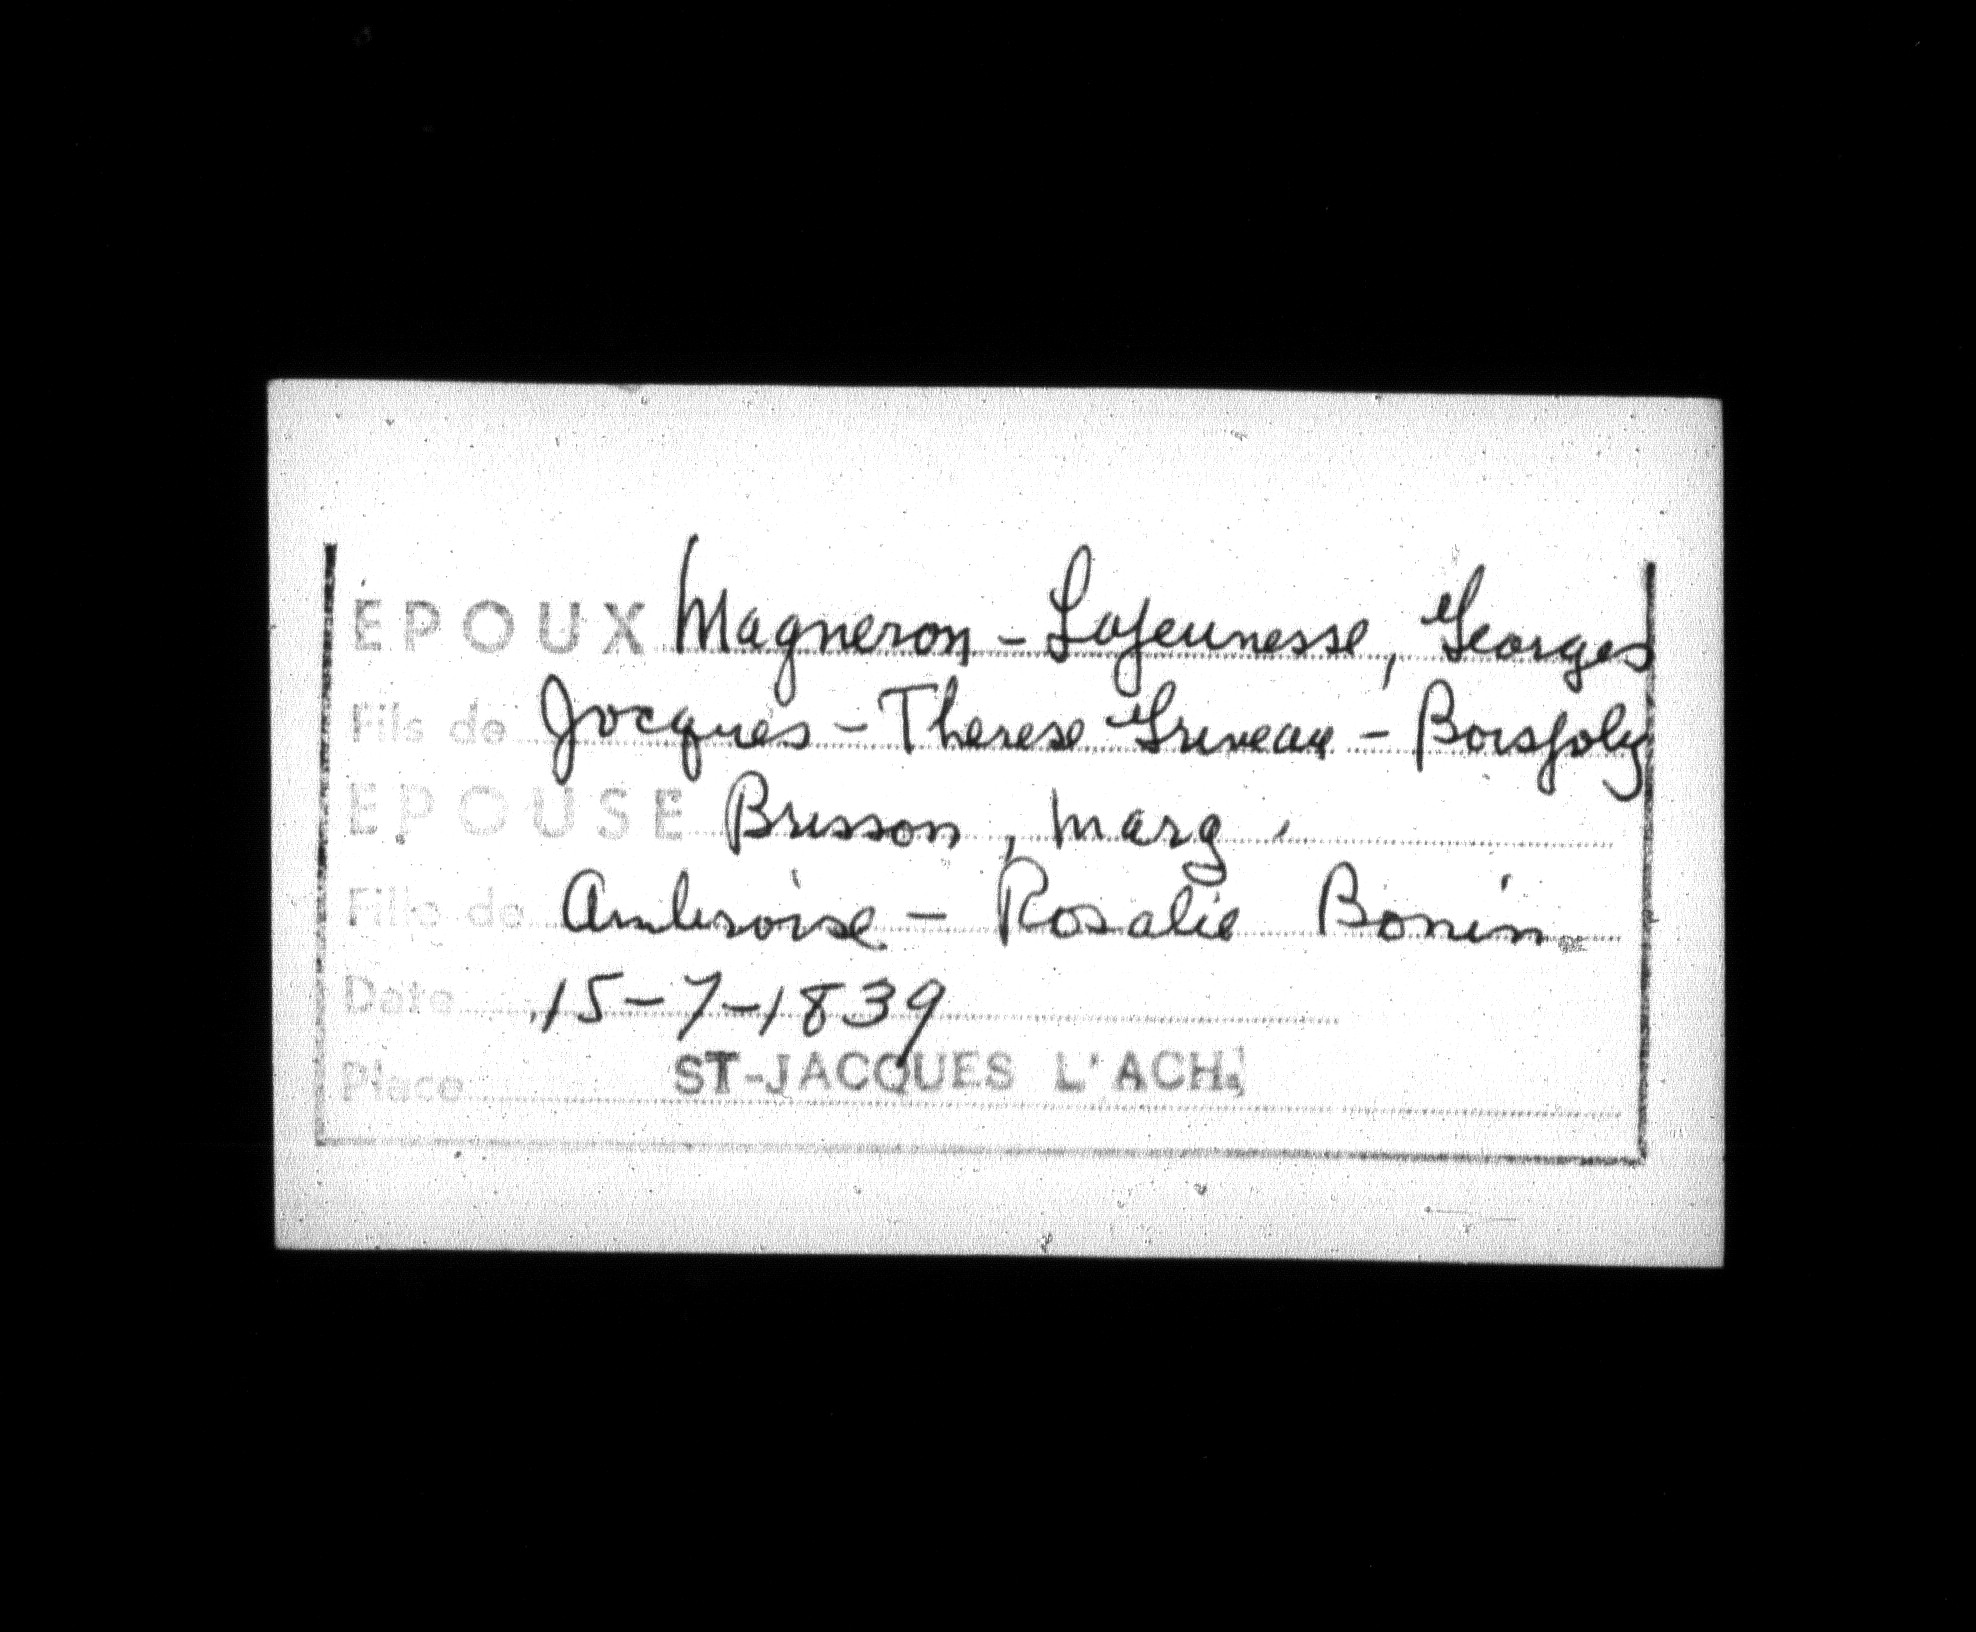 ÉPOUX Magneron - Lajeunesse, Georges
Fils de Jacques - Therese Griveau - Boisjoly
EPOUSE Brisson, Marg.
Fille de Ambroise - Rosalie Bonin
Date 15-7-1839
Place ST-JACQUES L'ACH.